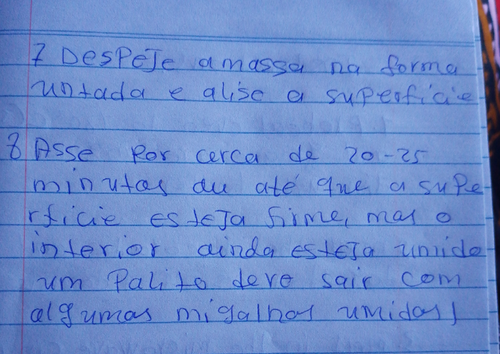 7 Despeje a massa na forma
untada e alise a superficie
8 Asse por cerca de 20-25
minutos ou até que a supe
rficie esteja firme, mas o
interior ainda esteja umido
um palito deve sair com
algumas migalhas umidas)